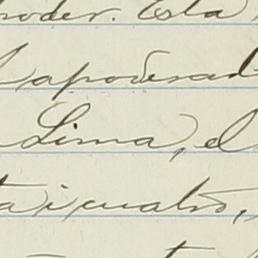 poder. Esta
apoderad
Lima, el
ta i cuatro,